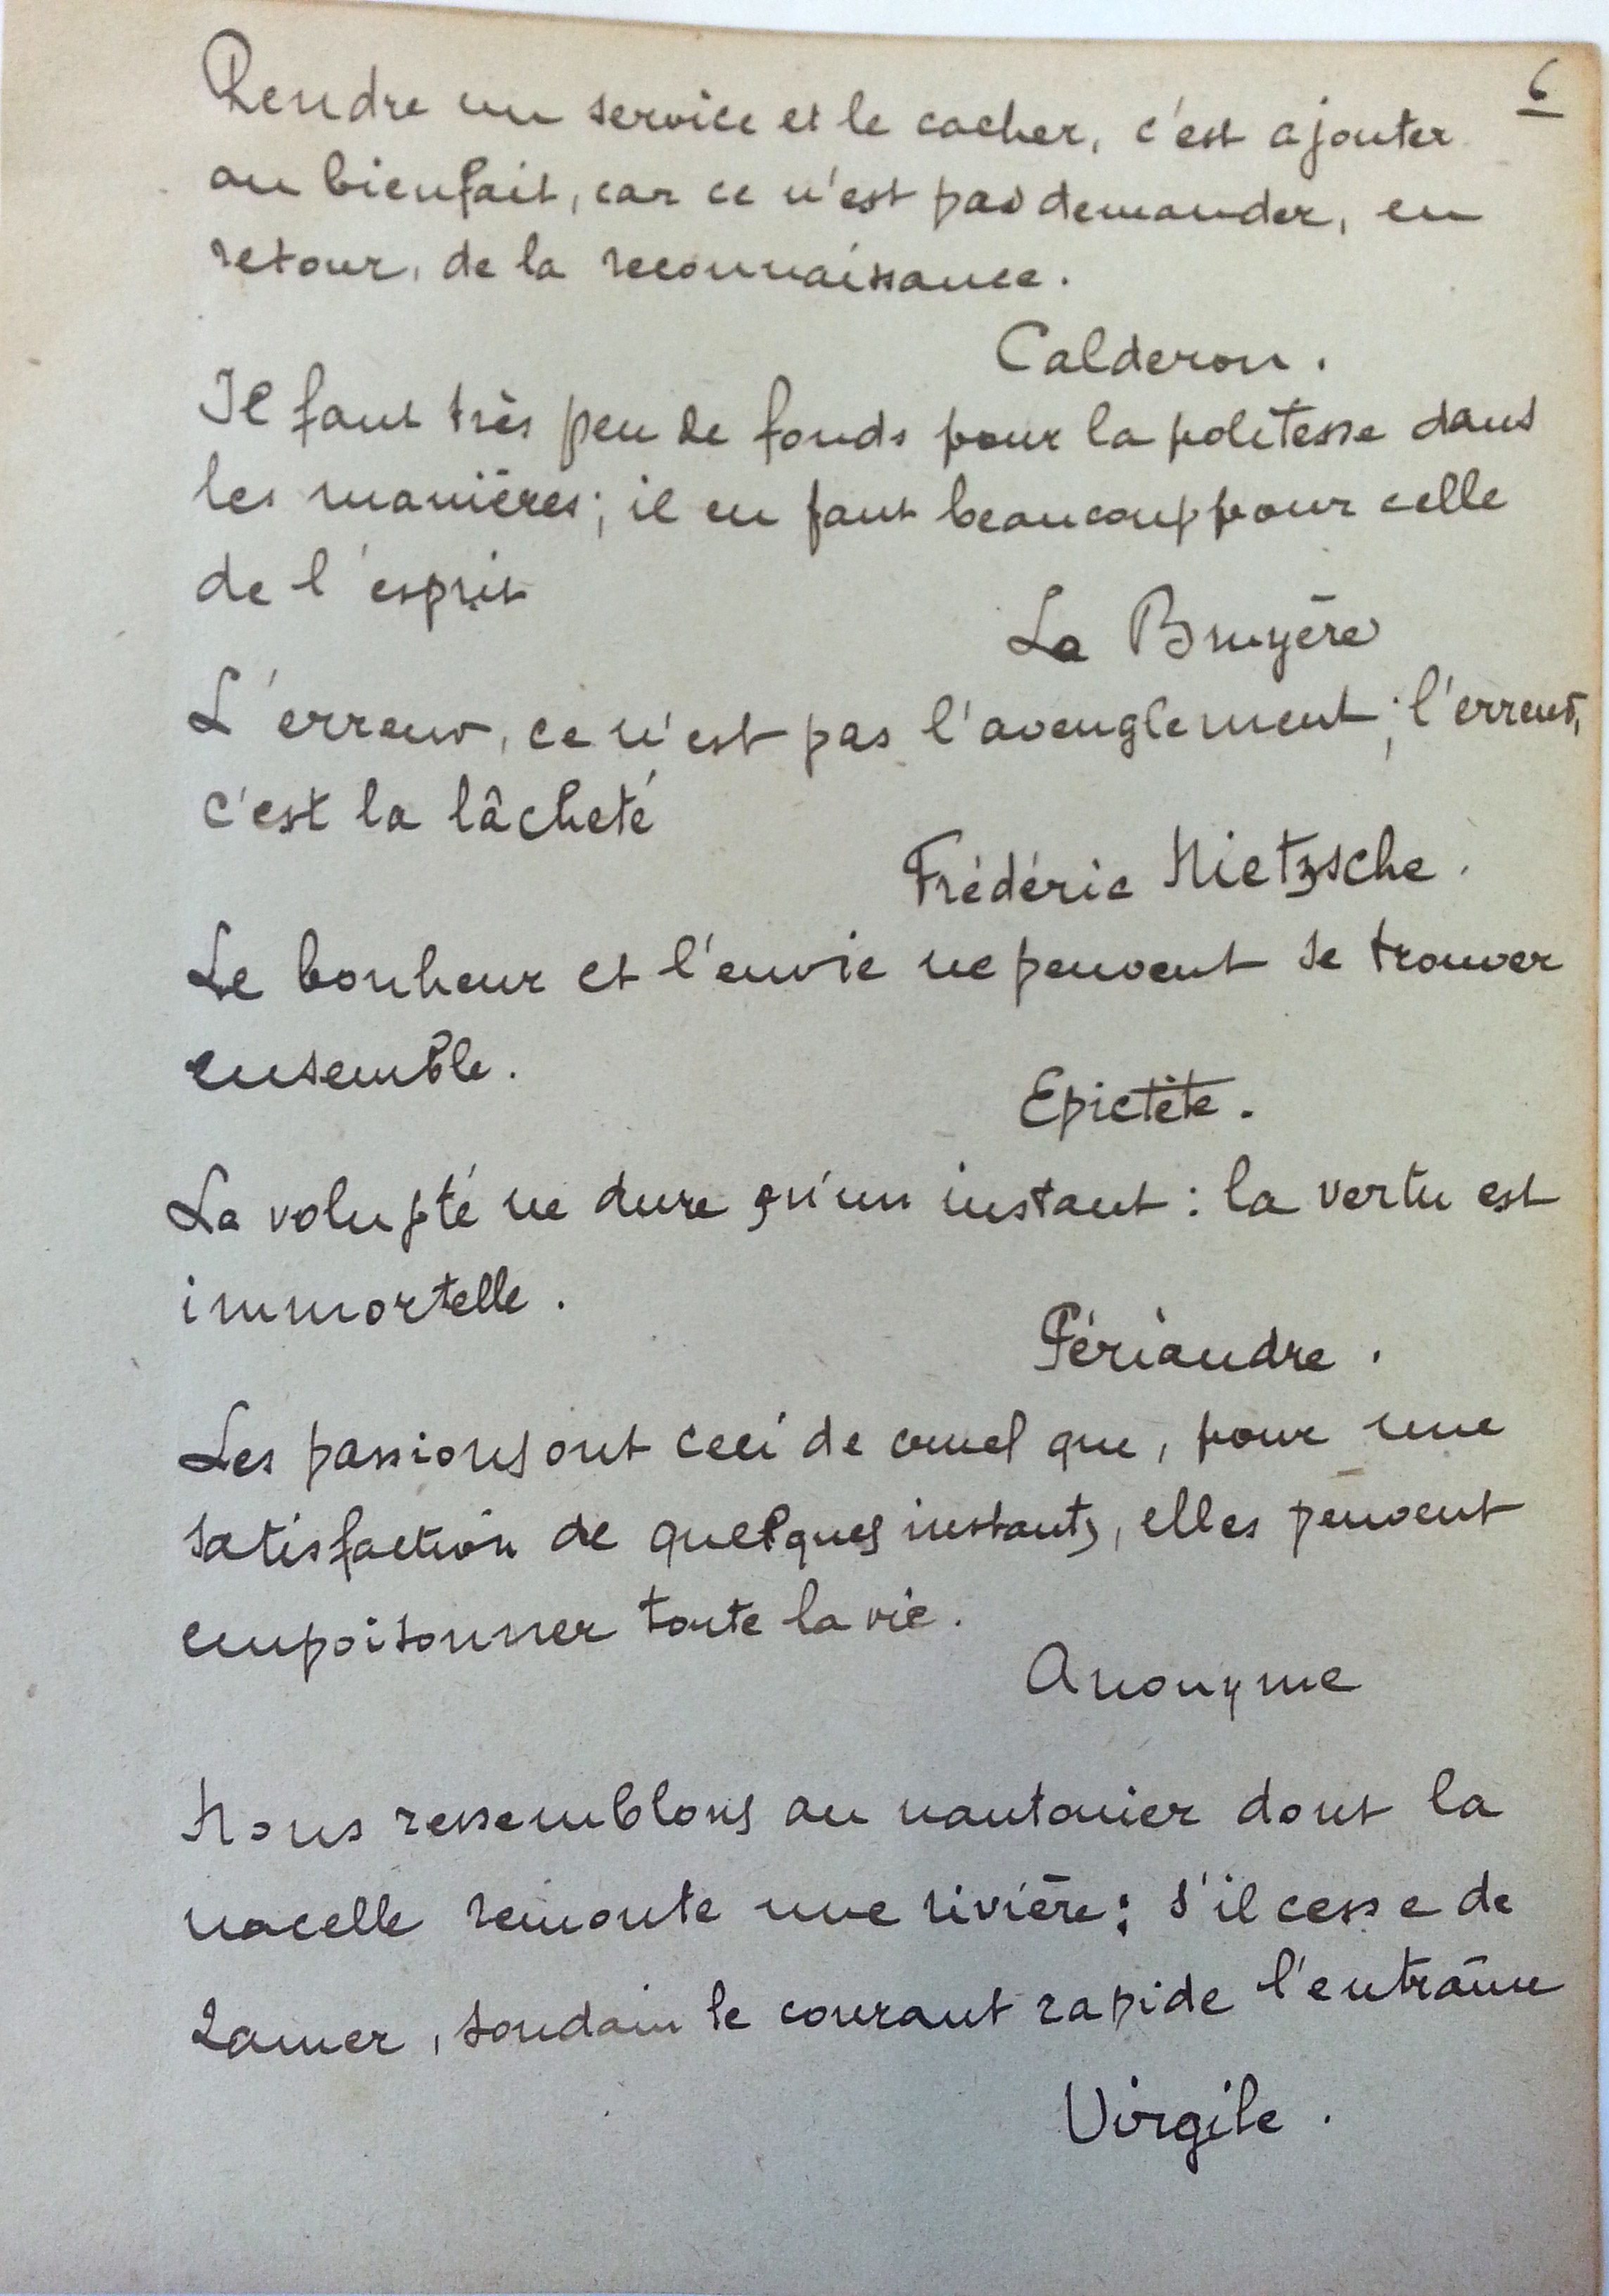 6
Rendre un service et le cacher, c'est ajouter
au bienfait, car ce n'est pas demander, en
retour, de la reconnaissance.
Calderon.
Il faut très peu de fonds pour la politesse dans
les manières; il en faut beaucoup pour celle
de l'esprit
La Bruyère
L'erreur, ce n'est pas l'aveuglement; l'erreur,
c'est la lâcheté
Frédéric Nietzsche.
Le bonheur et l'envie ne peuvent se trouver
ensemble.
Epictète.
La volupté ne dure qu'un instant : la vertu est
immortelle.
Périandre.
Les passions ont ceci de cruel que, pour une
satisfaction de quelques instants, elles peuvent
empoisonner toute la vie.
Anonyme
Nous ressemblons au nautonier dont la
nacelle remonte une rivière : s'il cesse de
ramer, soudain le courant rapide l'entraîne
Virgile.